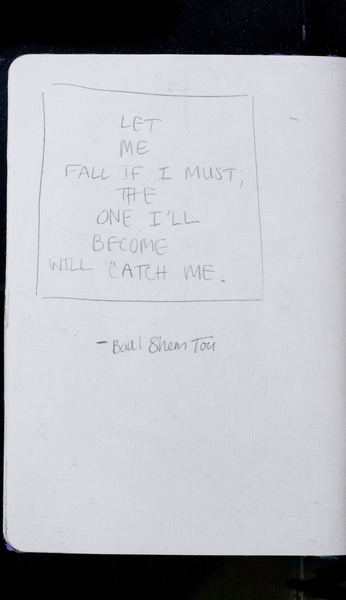 LET
ME
FALL IF I MUST,
THE
ONE I'LL
BECOME
WILL CATCH ME.
- Baal Shem Tov